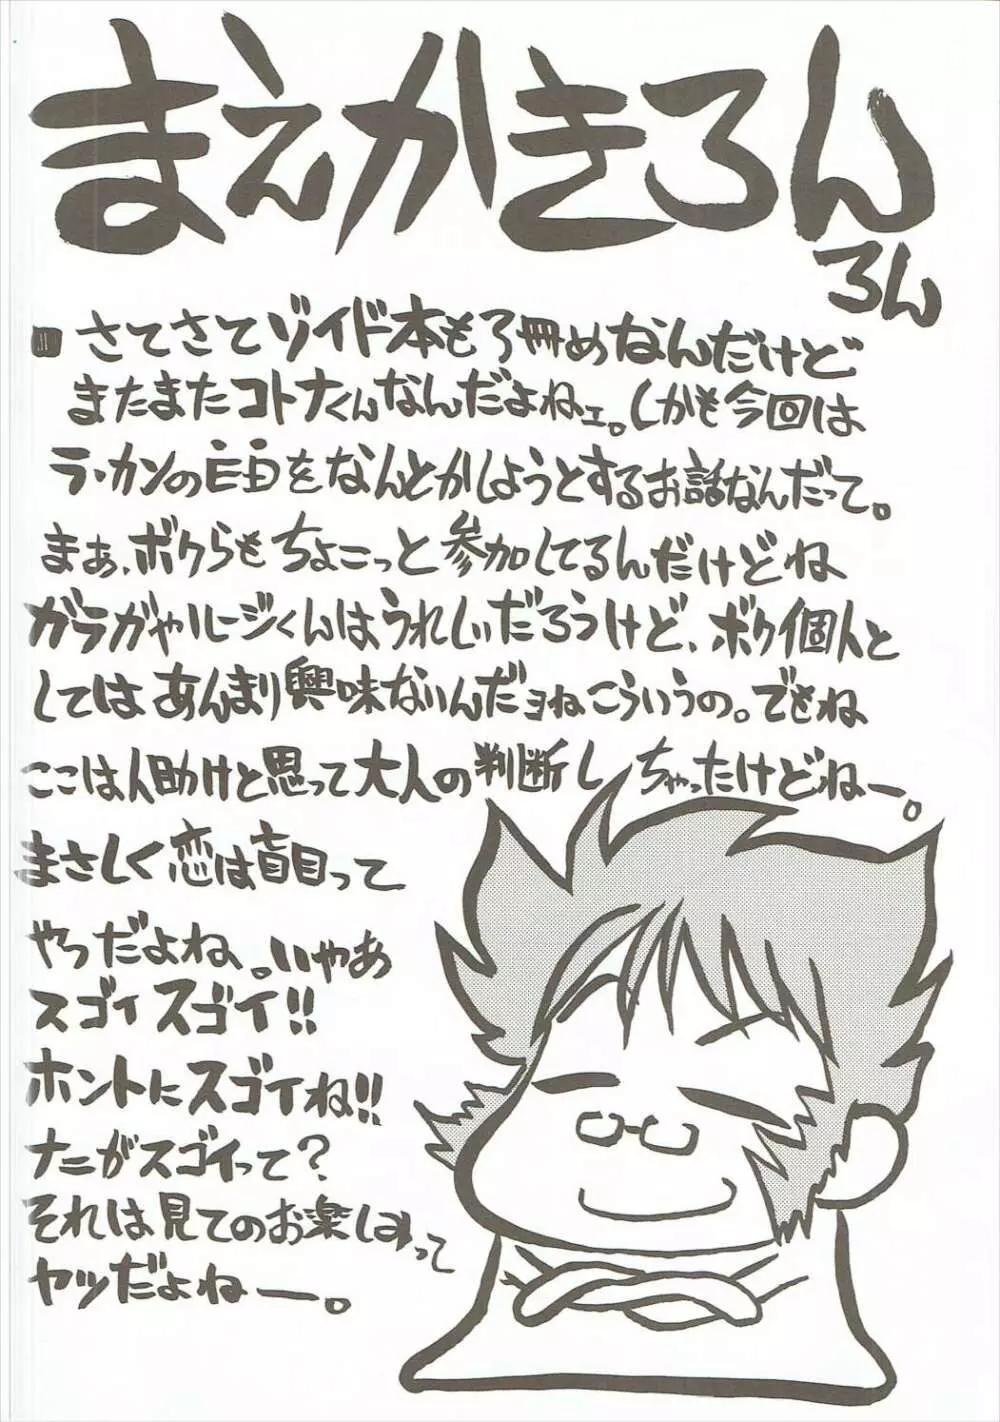 まえかきろん
ろん
さてさてゾイド本も3冊めなんだけど
またまたコトナくんなんだよねェ。しかも今回は
ラ・カンの目をなんとかしようとするお話なんだって。
まぁ、ボクらもちょこっと参加してるんだけどね
ガラガやルージくんはうれしいだろうけど、ボク個人と
してはあんまり興味ないんだヨねこういうの。でもね
ここは人助けと思って大人の判断しちゃったけどねー。
まさしく恋は盲目って
やつだよね、。いやあ
スゴイスゴイ!!
ホントにスゴイね!!
ナニがスゴイって?
それは見てのお楽しみって
ヤツだよねー。